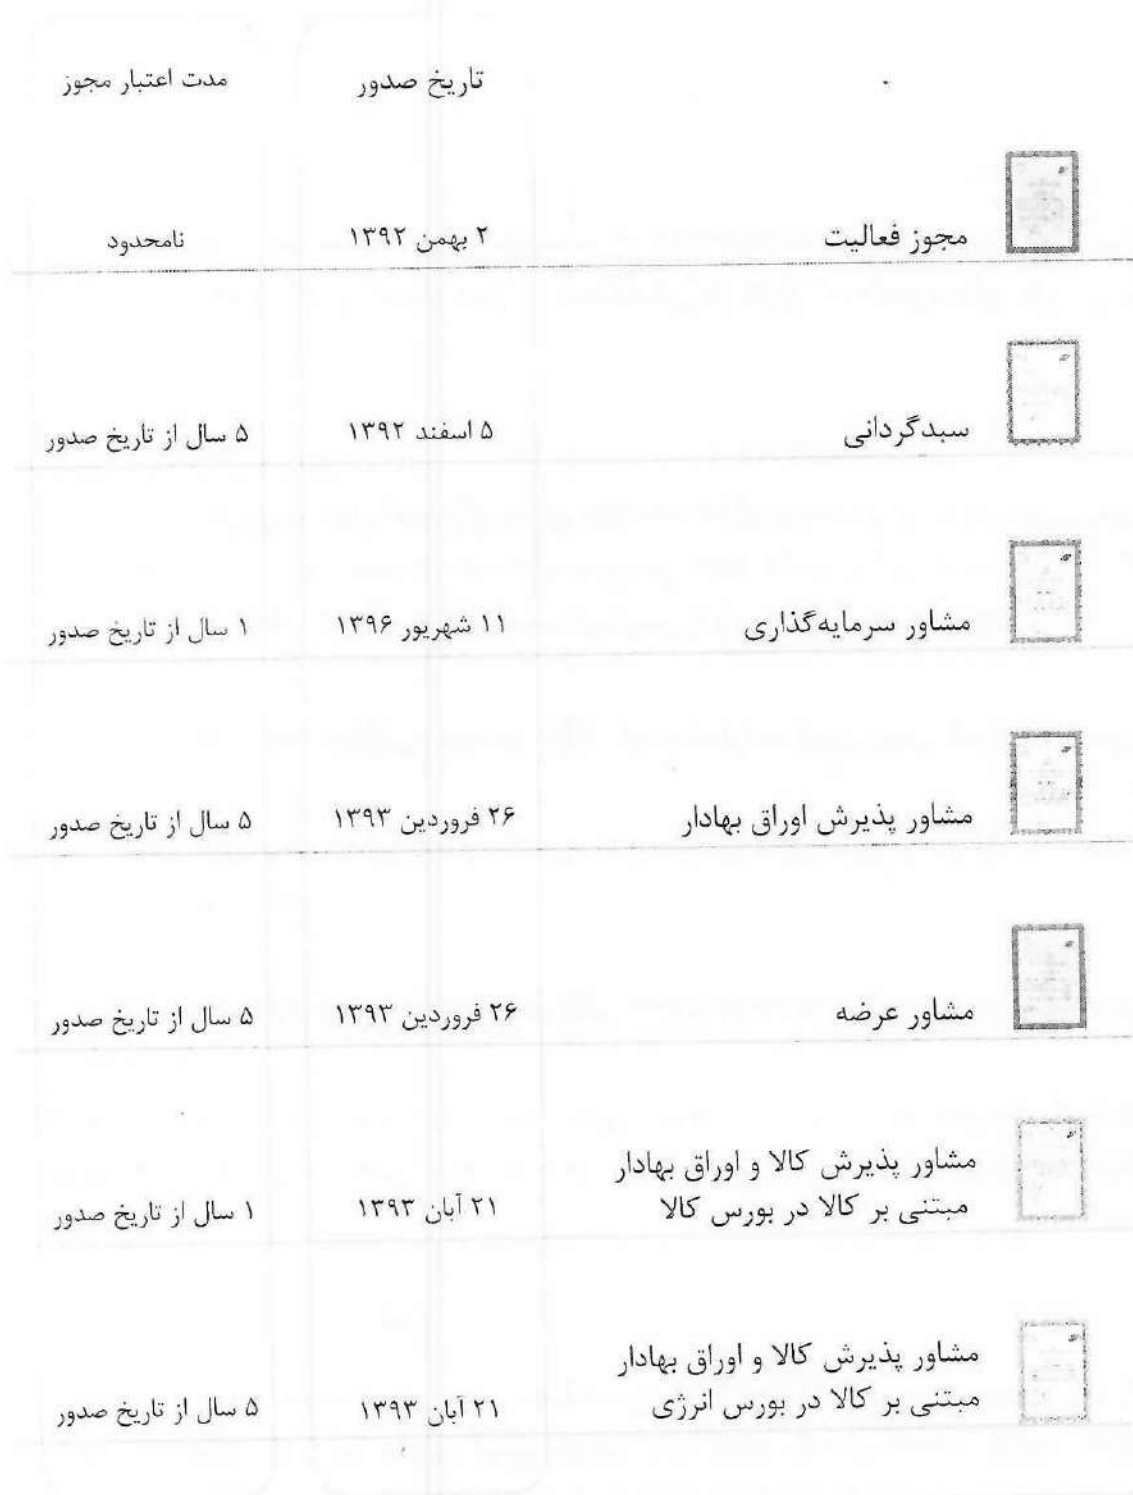 تاریخ صدور
مدت اعتبار مجوز
مجوز فعالیت
۲ بهمن ۱۳۹۲
نامحدود
سبدگردانی
۵ اسفند ۱۳۹۲
۵ سال از تاریخ صدور
مشاور سرمایه‌گذاری
۱۱ شهریور ۱۳۹۶
۱ سال از تاریخ صدور
مشاور پذیرش اوراق بهادار
۲۶ فروردین ۱۳۹۳
۵ سال از تاریخ صدور
مشاور عرضه
۲۶ فروردین ۱۳۹۳
۵ سال از تاریخ صدور
مشاور پذیرش کالا و اوراق بهادار
مبتنی بر کالا در بورس کالا
۲۱ آبان ۱۳۹۳
۱ سال از تاریخ صدور
مشاور پذیرش کالا و اوراق بهادار
مبتنی بر کالا در بورس انرژی
۲۱ آبان ۱۳۹۳
۵ سال از تاریخ صدور